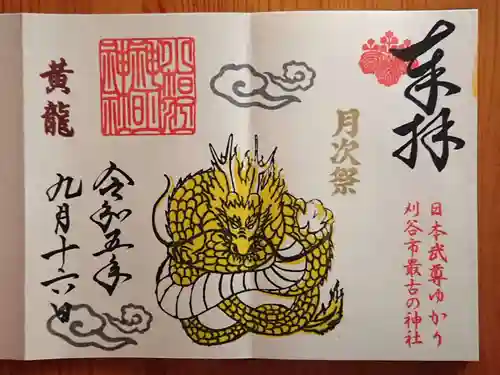 奉拝
日本武尊ゆかり
刈谷市最古の神社
月次祭
小垣江
神明
神社
黄龍
令和五年
九月十六日